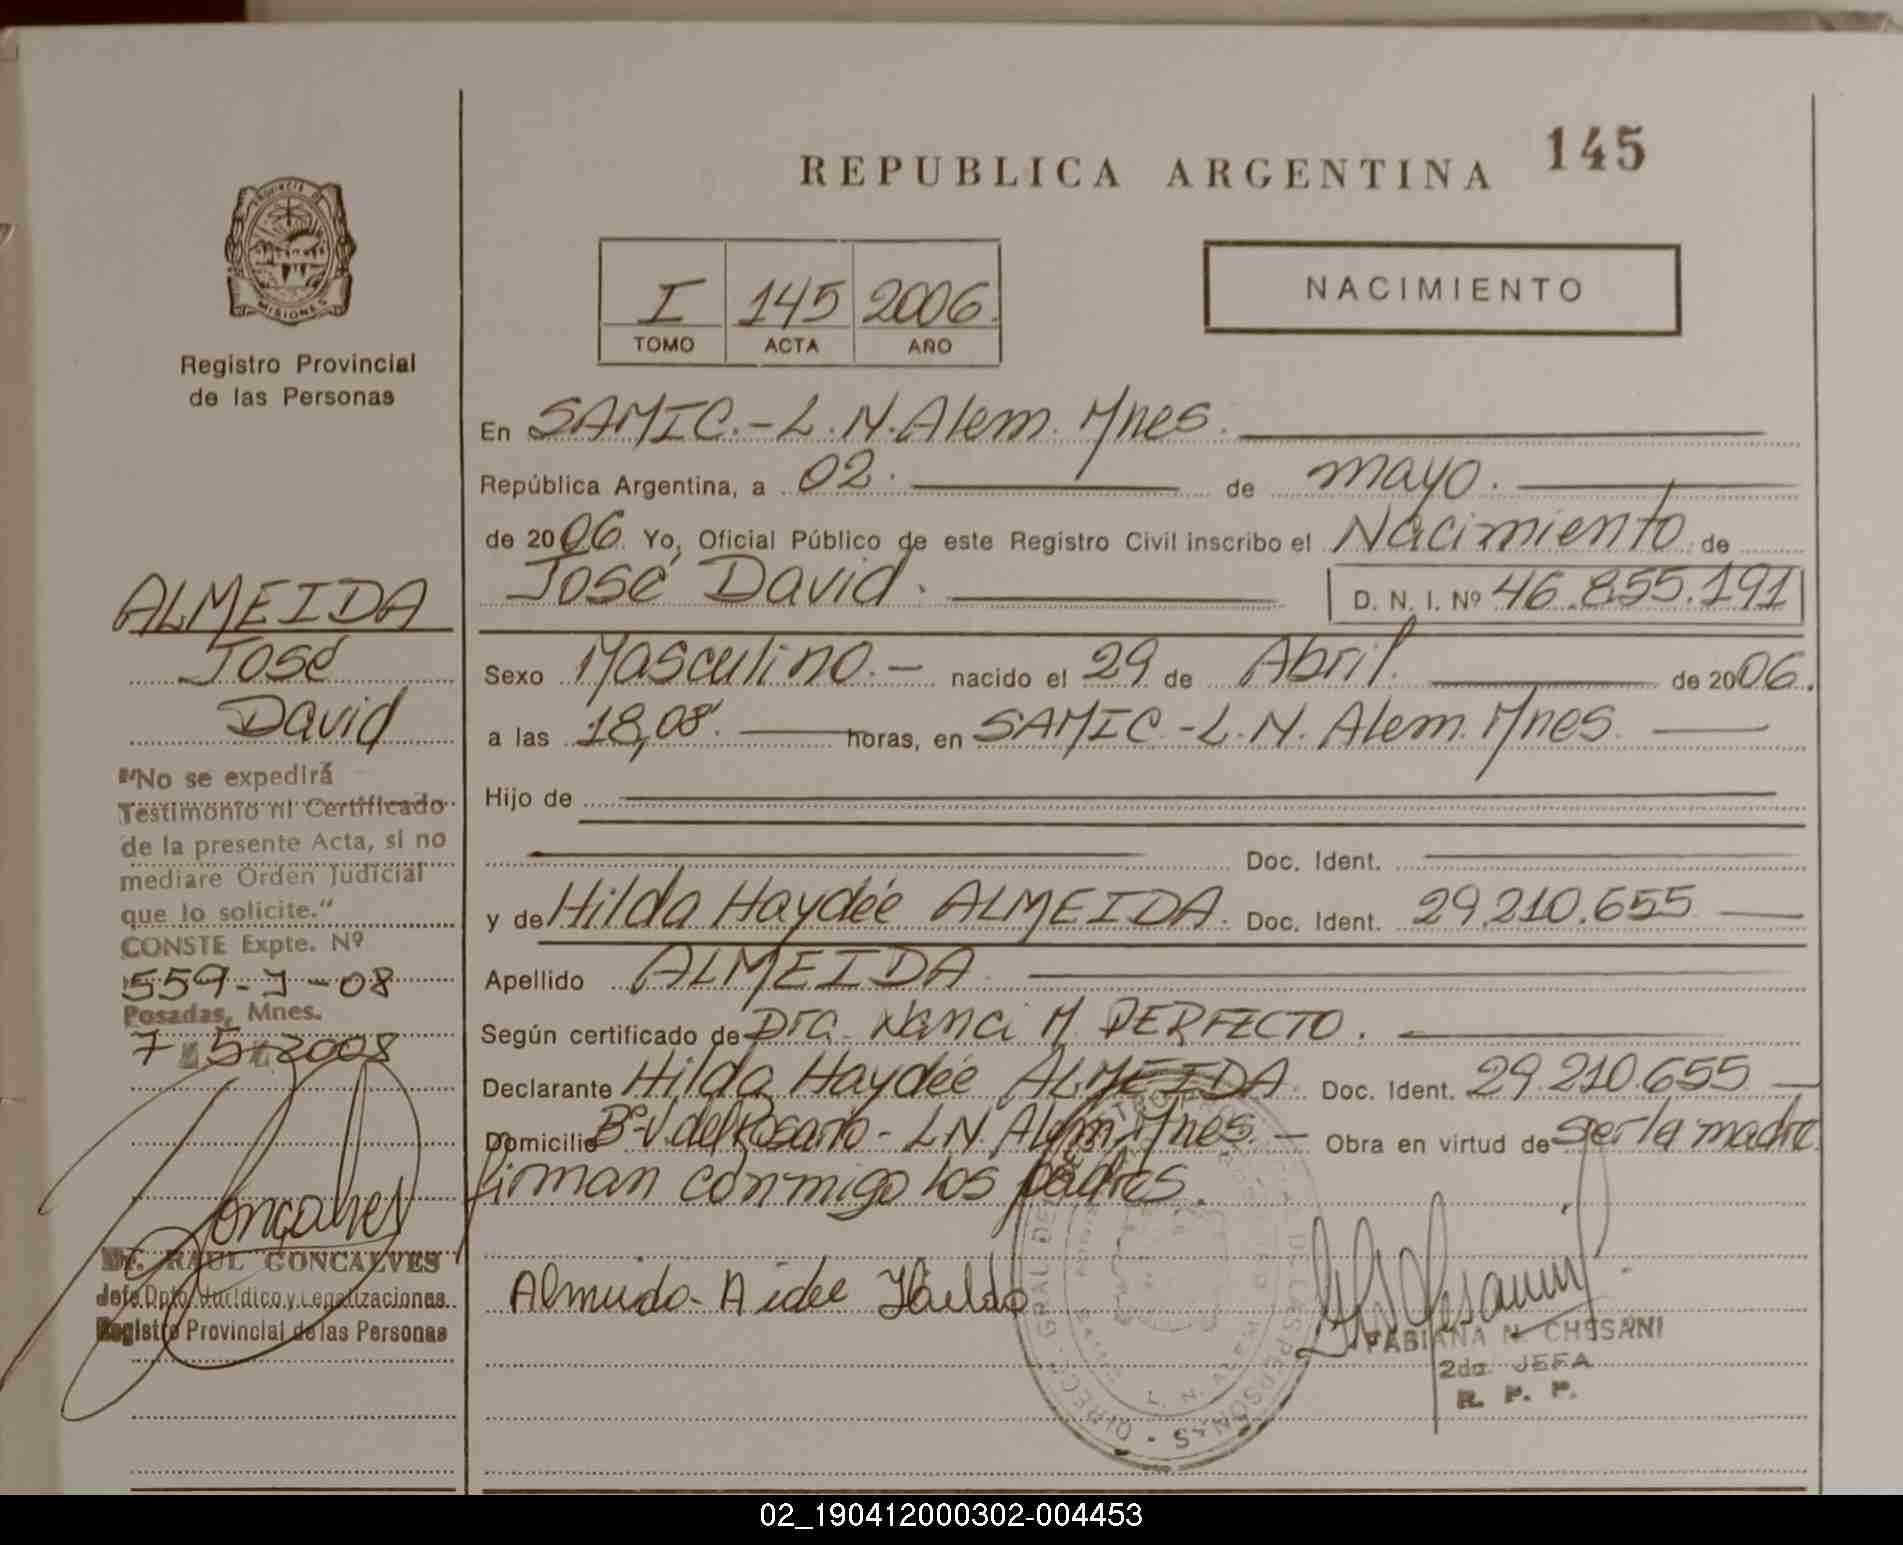 REPUBLICA ARGENTINA 145
PROVINCIA DE
MISIONES
Registro Provincial
de las Personas
I 145 2006
TOMO ACTA AÑO
NACIMIENTO
ALMEIDA
José
David
"No se expedirá
Testimonio ni Certificado
de la presente Acta, si no
mediare Orden Judicial
que lo solicite."
CONSTE Expte. Nº
559-J-08
Posadas, Mnes.
7 5 2008
Gonçalves
Dr. RAUL GONCALVES
Jefe Dpto. Jurídico y Legalizaciones
Registro Provincial de las Personas
En SAMIC.-L.N.Alem. Mnes.
República Argentina, a 02. de mayo.
de 2006. Yo, Oficial Público de este Registro Civil inscribo el Nacimiento de
José David. D. N. I. Nº 46.855.191
Sexo Masculino.- nacido el 29 de Abril. de 2006.
a las 18,08'. horas, en SAMIC.-L.N. Alem. Mnes.
Hijo de
Doc. Ident.
y de Hilda Haydée ALMEIDA. Doc. Ident. 29.210.655
Apellido ALMEIDA.
Según certificado de Dra. Nanci M. PERFECTO.
Declarante Hilda Haydée ALMEIDA. Doc. Ident. 29.210.655
Domicilio Bº-V.del Rosario-L.N. Alem. Mnes.- Obra en virtud de ser la madre
firman conmigo los padres.
Almeida Aidee Hilda
FABIANA N. CHSSANI
2da. JEFA
R. P. P.
02_190412000302-004453